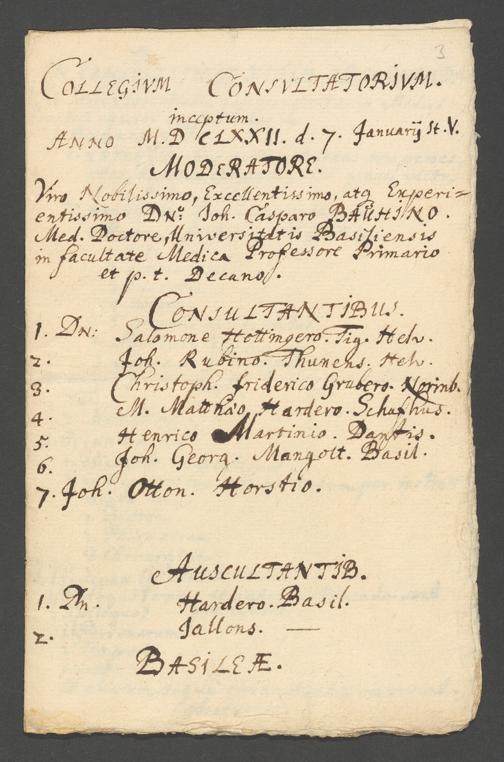 3
COLLEGIVM CONSVLTATORIVM.
inceptum.
ANNO M.D CLXXII. d. 7. Januarij St. V.
MODERATORE.
Viro Nobilissimo, Excellentissimo, atq Experi=
entissimo DNo: Joh. Casparo BAUHINO.
Med. Doctore, Universitatis Basiliensis
in facultate Medica Professore Primario
et p. t. Decano.
CONSULTANTIBUS.
1. Dn: Salomone Hottingero. Tig. Helv.
2. Joh. Rubino. Thunens. Helv.
3. Christoph. friderico Grubero. Norimb.
4. M. Matthæo Hardero. Schafhus.
5. Henrico Martinio. Dantis.
6. Joh. Georg. Mangolt. Basil.
7. Joh. Otton. Horstio.
AUSCULTANTIB.
1. Dn. Hardero. Basil.
2. Jallons. —
BASILEÆ.